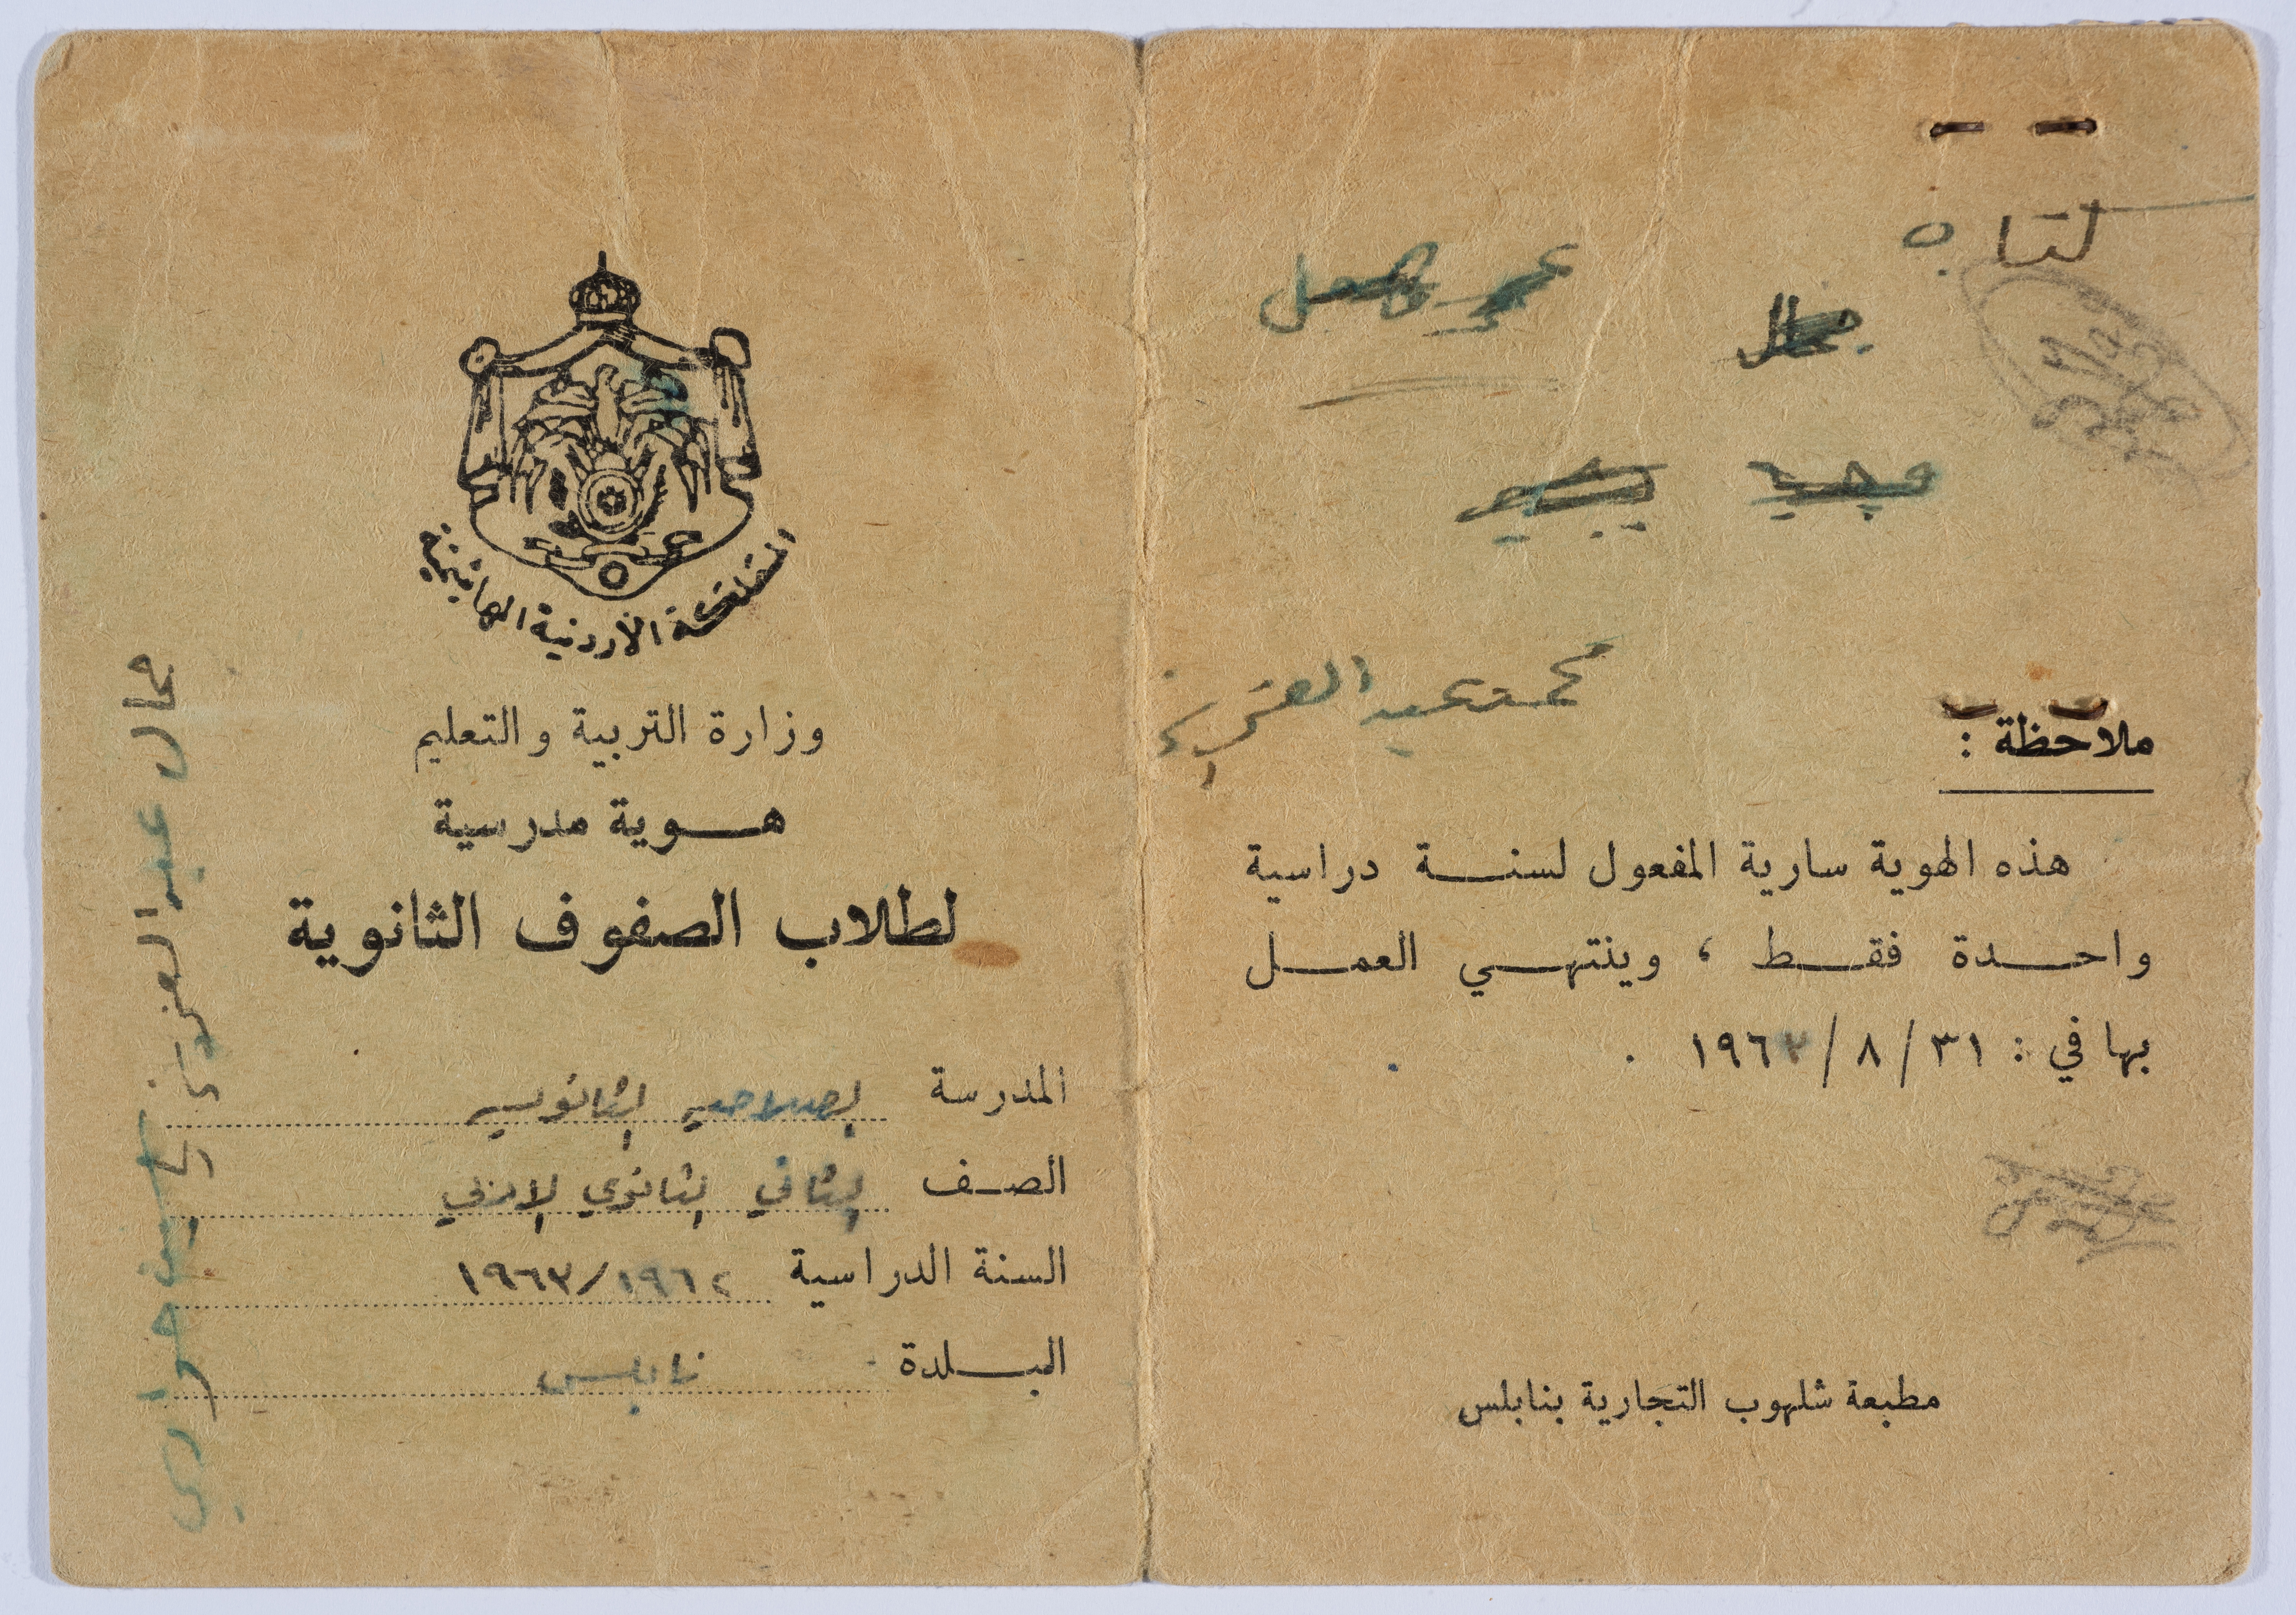 المملكة الأردنية الهاشمية
وزارة التربية والتعليم
هـــوية مدرسية
لطلاب الصفوف الثانوية
المدرسة الصلاحيه الثانويه
الصـف الثاني الثانوي الادبي
السنة الدراسية ١٩٦٢/١٩٦٣
البـــلدة نابلس
جمال عبد العزيز
حواري
جمال
محمد عبد العزيز
ملاحظة :
هذه الهوية سارية المفعول لسنـــة دراسية
واحـــدة فقـــط ، وينتهـــي العمـــل
بها في : ٣١ / ٨ / ١٩٦٣ .
مطبعة شلهوب التجارية بنابلس